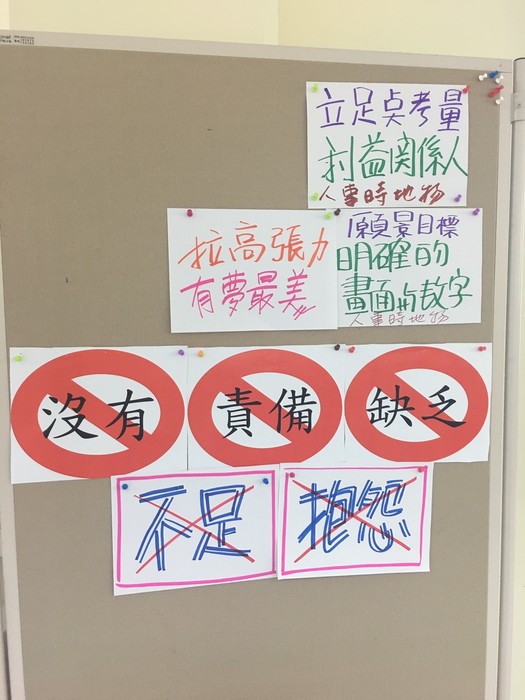 立足点考量
利益関係人
人事時地物
拉高張力
有夢最美
願景目標
明確的
畫面與数字
人事時地物
沒有
責備
缺乏
不足
抱怨